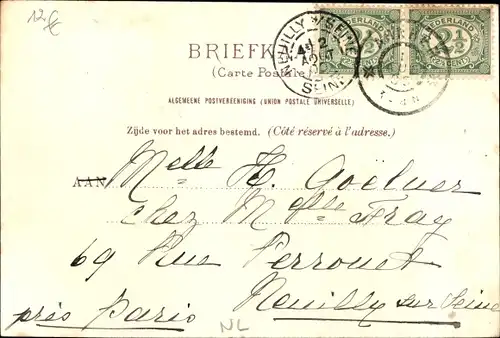 12.€
BRIEFK
(Carte Postale
ALGEMEENE POSTVEREENIGING (UNION POSTALE UNIVERSELLE)
Zijde voor het adres bestemd. (Côté réservé à l'adresse.)
NEUILLY S/SEINE
SEINE
NEDERLAND
2½
CENT
NEDERLAND
2½
CENT
AAN Melle H. Goëluer
chez Melle Fray
69 Rue Perronet
près Paris Neuilly sur Seine
NL